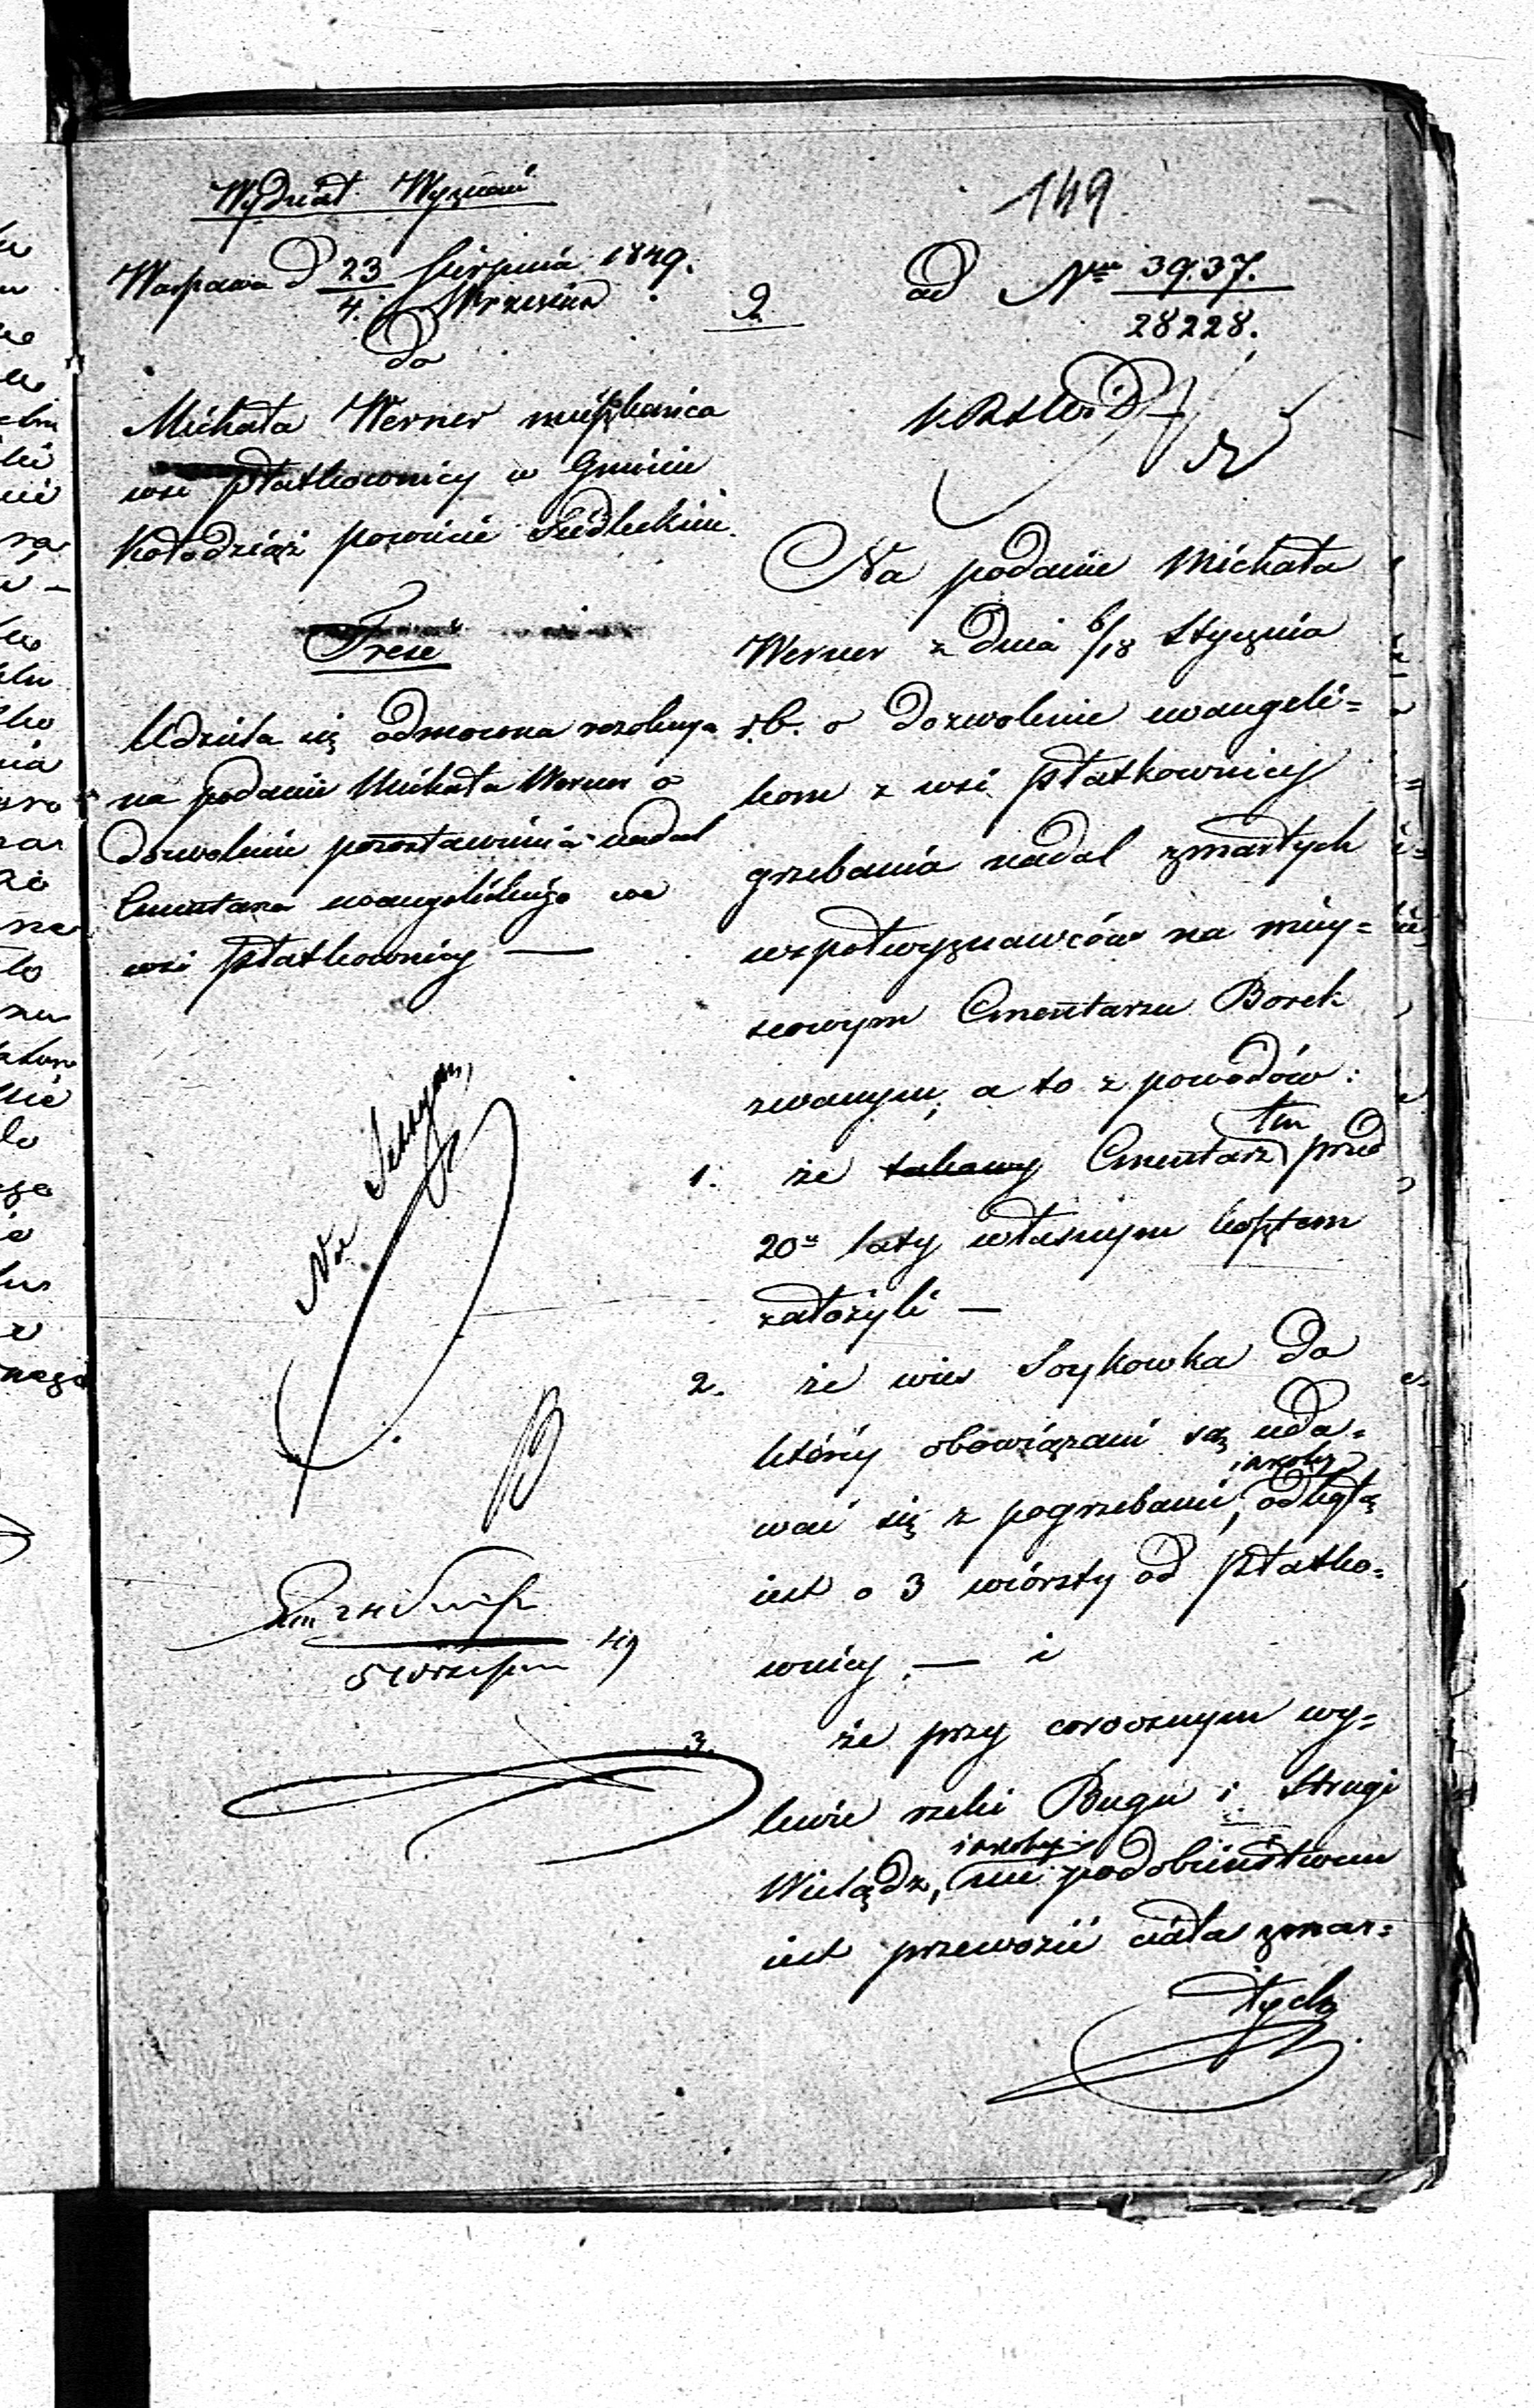 149
Wydział Wyznań
Warszawa d 23 Sierpnia 1849.
4. Września
2
ad Nr 3937.
28228.
Do
Michała Werner mieszkańca
wsi Płatkownicy w Gminie
Kołodziąż powiecie Siedleckim.
Treść
Udziela się odmowna rezolucya
na podanie Michała Werner o
dozwolenie pozostawienia nadal
Cmentarza ewangelickiego we
wsi Płatkownicy —
Na
5 Września 49
K.R.S.W. i D.
Na podanie Michała
Werner z dnia 6/18 Stycznia
r.b. o dozwolenie ewangeli=
kom z wsi Płatkownicy
grzebania nadal zmarłych
wspołwyznawców na miey=
scowym Cmentarzu Borek
zwanym, a to z powodów:
1. że takowy ten Cmentarz przed
20u laty własnym kosztem
założyli —
2. że wieś Soykowka do
któréy obowiązani są uda=
wać się z pogrzebami, jakoby odległą
iest o 3 wiórsty od Płatko=
wnicy, — i
3. że przy corocznym wy=
lewie rzeki Bugu i Strugi
Wielądz, jakoby nie podobieństwem
iest przewozić ciała zmar=
łych